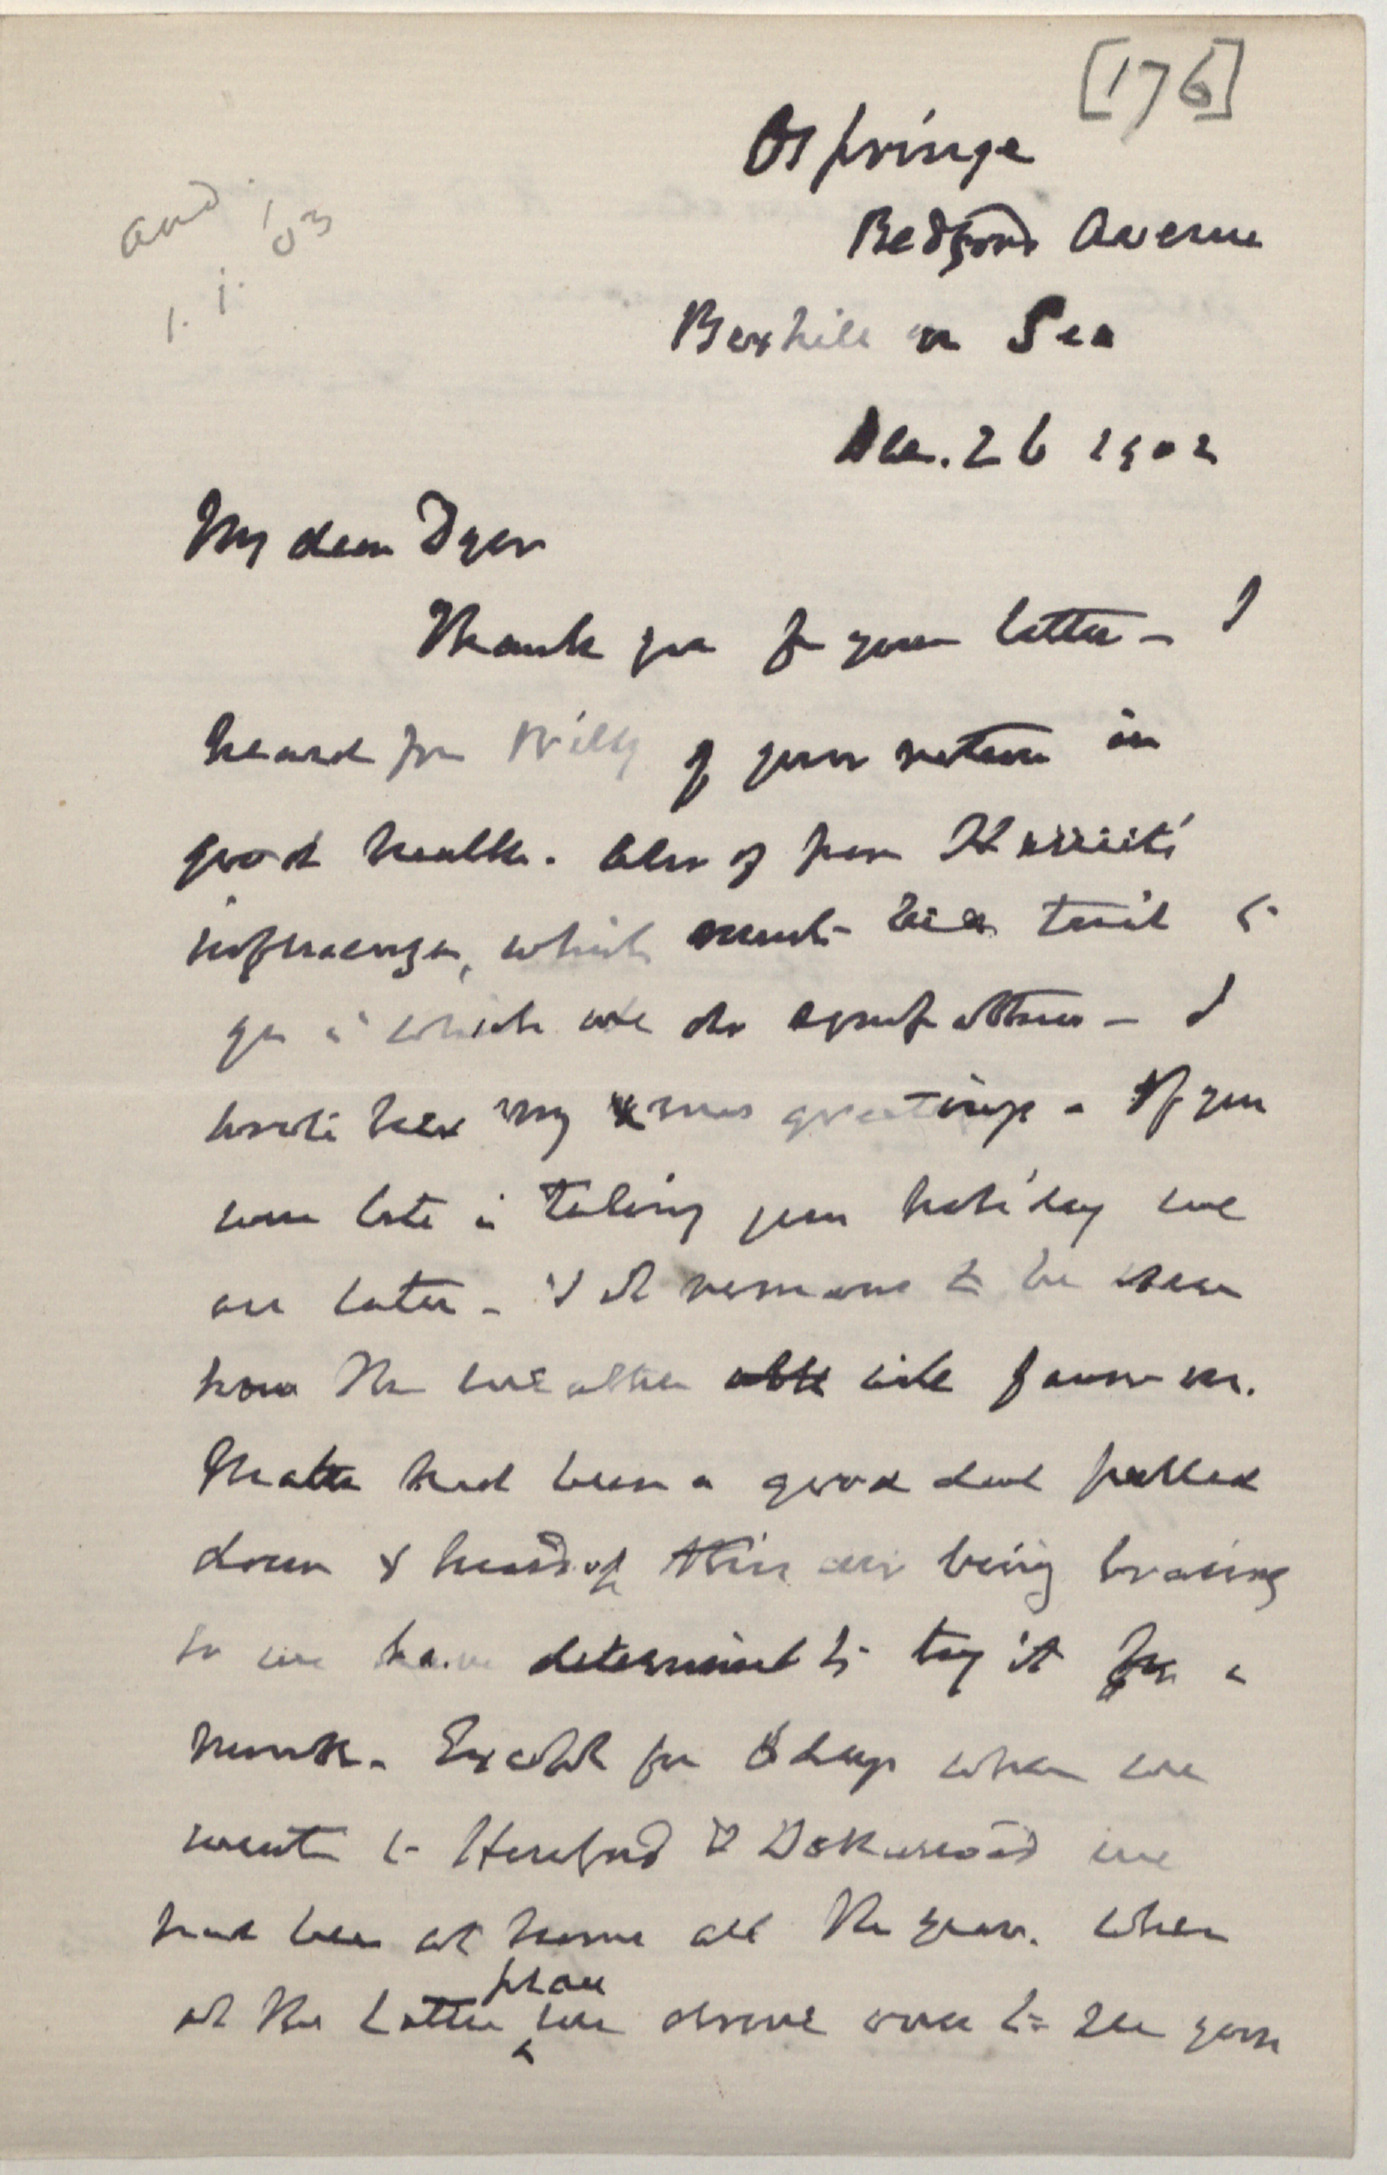 [176]
Ospringe
Bedford Avenue
Bexhill on Sea
Dec. 26 1902
and
1. 1. '03
My dear Dyer
Thank you for your letter – I
heard from Willy of your return in
good health. Also of poor Harriet's
influenza, which must be a trial to
you in which we do sympathise – I
wrote her my Xmas greetings – If you
were late in taking your holiday we
are later – & it remains to be seen
how the weather will favour us.
had been a good deal pulled
down & heard of this air being bracing
so we have determined to try it for a
month. Except for 8 days when we
went to Hereford & we
had been at home all the year. When
at the latter place we drove over to see your